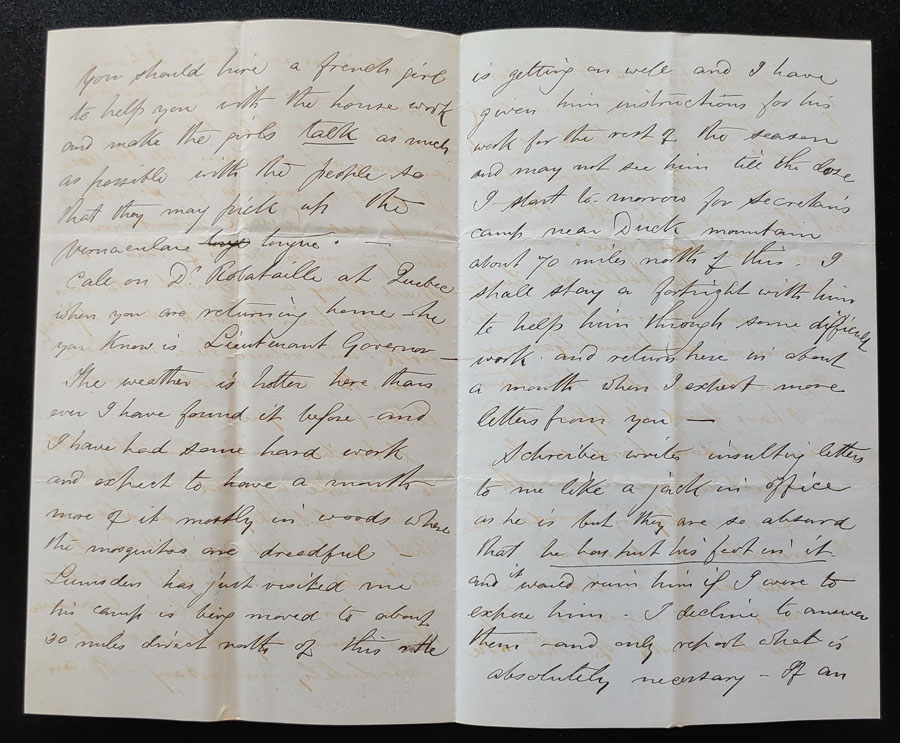 You should hire a french girl
to help you with the house work
and make the girls talk as much
as possible with the people so
that they may pick up the
vernaculare tongue. —
Call on Dr Robataille at Quebec
when you are returning home - he
you know is Lieutenant Governor —
The weather is hotter here than
ever I have found it before - and
I have had some hard work
and expect to have a month
more of it mostly in woods where
the mosquitos are dreedful —
Lumsden has just visited me
his camp is being moved to about
30 miles direct north of this
is getting on well and I have
given him instructions for his
work for the rest of the season
and may not see him till the close
I start to-morrow for Secretan's
camp near Duck mountain
about 70 miles north of this. I
shall stay a fortnight with him
to help him through some difficult
work and return here in about
a month when I expect more
letters from you —
Schreiber writes insulting letters
to me like a jack in office
as he is but they are so absurd
that he has put his foot in it
and it would ruin him if I were to
expose him - I decline to answer
them - and only report what is
absolutely necessary - If an